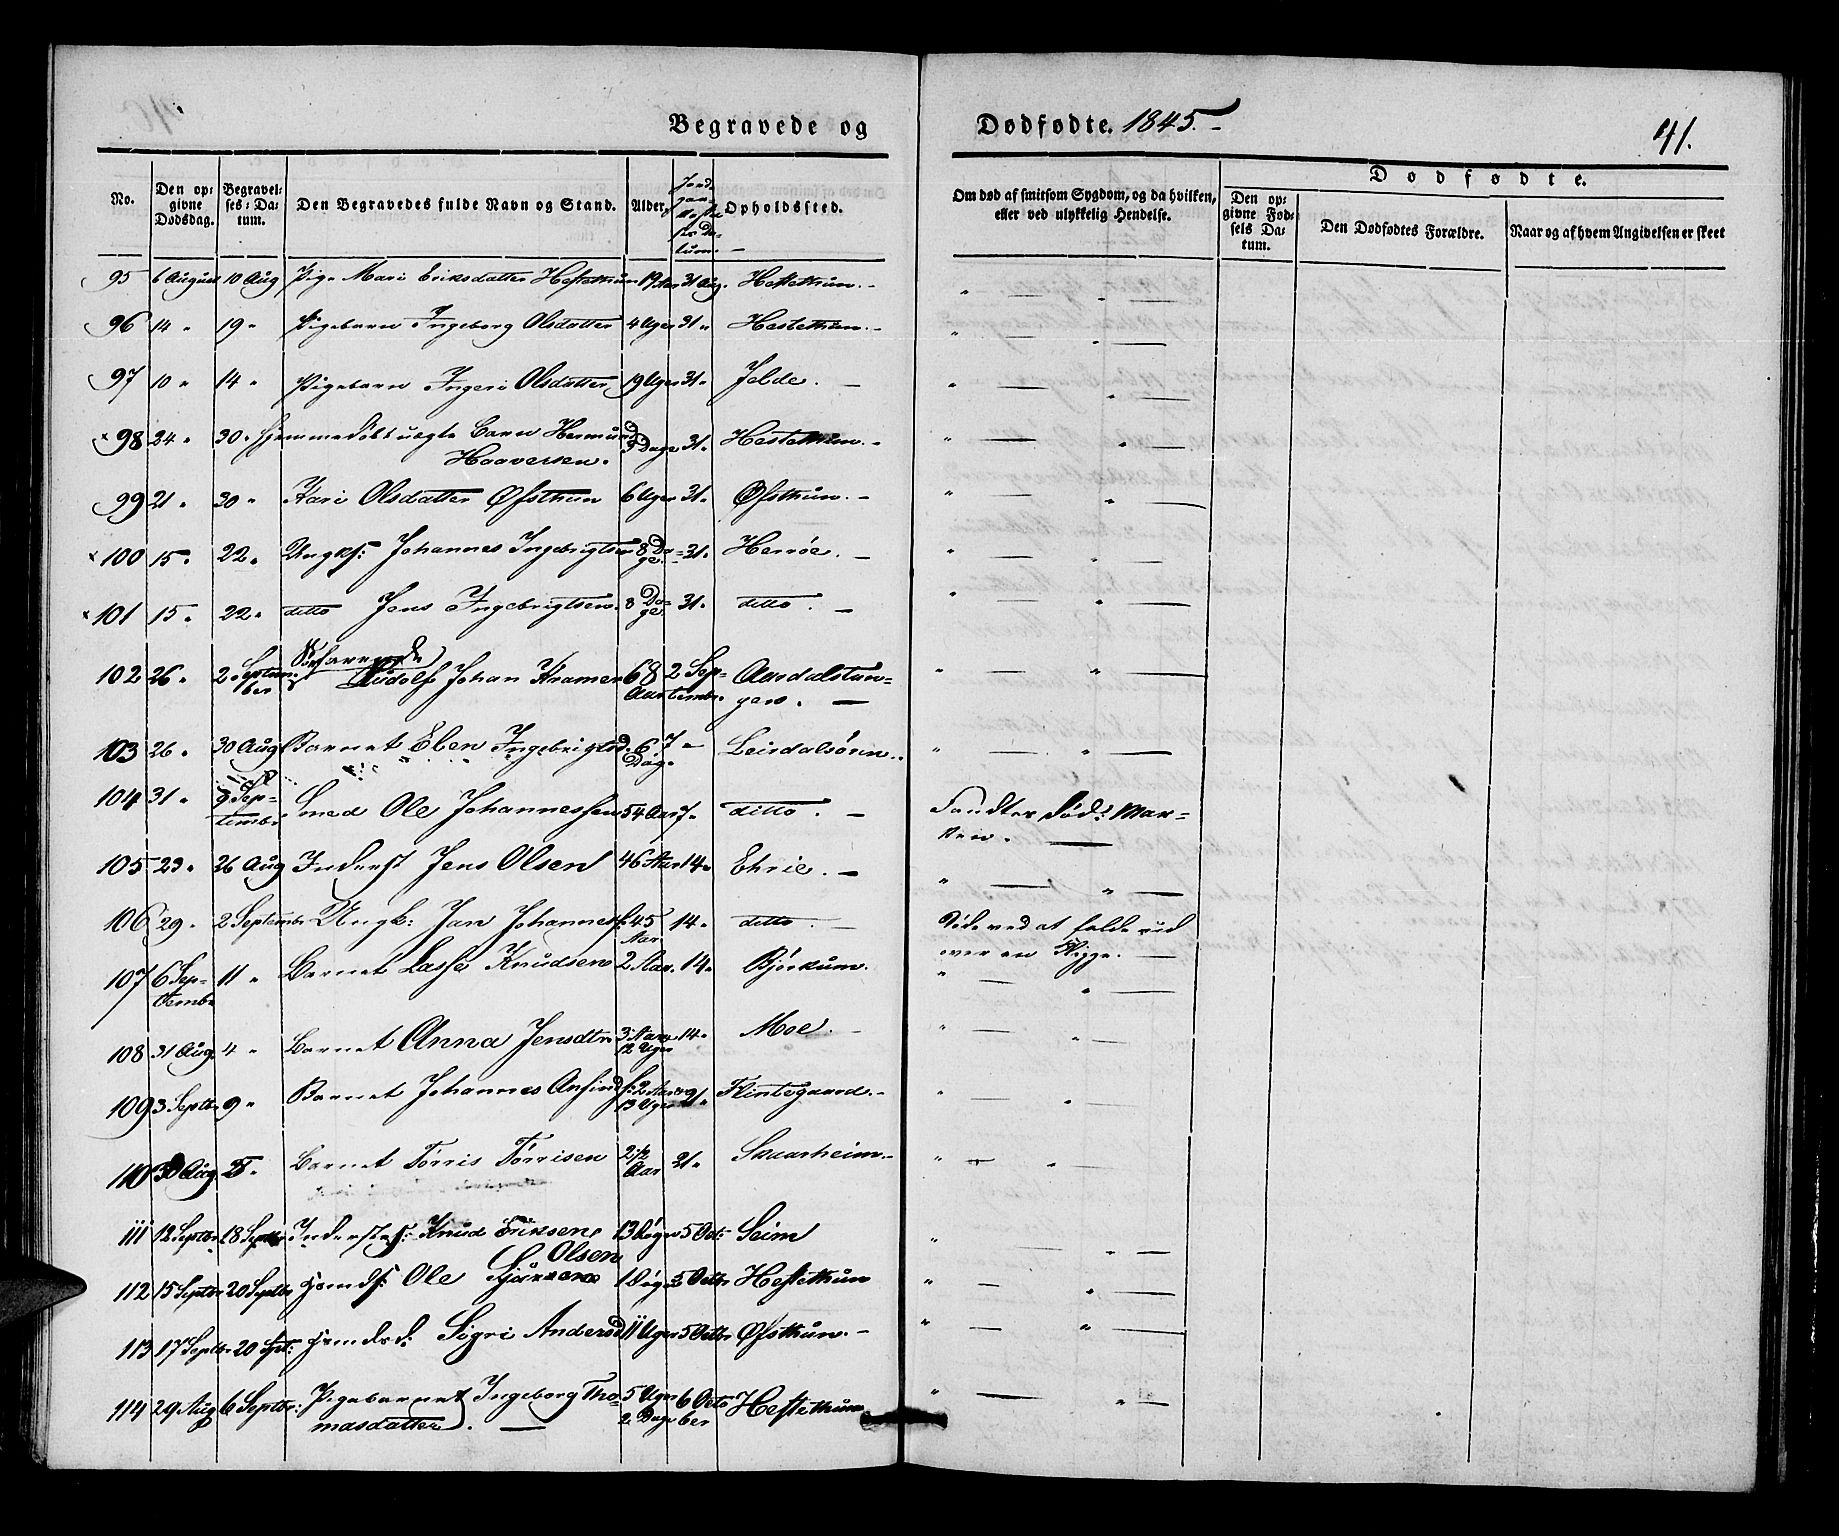 Begravede og Dodfødte. 1845.
41.
No. | Den opgivne Dødsdag. | Begravelses-Datum. | Den Begravedes fulde Navn og Stand. | Alder. | Opholdssted. | Om død af smitsom Sygdom, og da hvilken, eller ved ulykkelig Hendelse. | Dødfødte.
Den opgivne Fødsels Datum. | Den Dødfødtes Forældre. | Naar og af hvem Angivelsen er skeet
95 | 6 August | 10 Aug | Pige Mari Eriksdatter Hestethun | 19 Aar | 31 Aug. | Hestethun. - | " — " —
96 | 14 " | 19 " | Pigebarn Ingeborg Olsdatter | 4 Uger | 31 " | Hestethun. - | " — " —
97 | 10 " | 14 " | Pigebarn Ingeri Olsdatter | 19 Uger | 31 " | Jelde. — | " — " —
× 98 | 24 " | 30 " | Hjemmedøbt uægte Barn Hermund | 3 Dage | 31 " | Hestethun. - | " — " —
Haaversen.
99 | 21 " | 30 " | Kari Olsdatter Øfsthun | 6 Uger | 31 " | Øfsthun. - | " — " —
× 100 | 15 " | 22 " | Ungks: Johannes Ingebrigtsen | 8 Dage | 31 " | Henøe. — | " — " —
× 101 | 15 " | 22 " | ditto Jens Ingebrigtsen | 8 Dage | 31 " | ditto. — | " — " —
102 | 26 " | 2 September | Rudolf Johan Kramer | 68 Aar | 2 Septembr. | Aardalstangen. — | " — " —
103 | 26 " | 30 Aug | Barnet Elen Ingebrigtsd. | 6 Dag. | 7 " | Leirdalsøren. | " — " —
104 | 31 " | 9 Septembr | Smed Ole Johannessen | 54 Aar | 7 " | ditto. —
105 | 23 " | 26 Aug | Inderst Jens Olsen | 46 Aar | 14 " | Ehrie. — | " — " —
106 | 29 " | 2 Septembr | Ungk: Jan Johannes | 45 Aar | 14 " | ditto. — | Døde ved at falde ud
over en Rigge. —
107 | 6 Septembr | 11 " | Barnet Lasse Knudsen | 2 Aar. | 14 " | Bjørkum. | " — " —
108 | 31 Aug. | 4 " | Barnet Anna Jensdtr | 3 Aar 12 Uger | 14 " | Moe. - | " — " —
109 | 3 Septbr | 9 " | Barnet Johannes Anfinds: | 2 Aar 13 Uger | 21 " | Flintegaard. - | " — " —
110 | 30 Aug | 5 " | Barnet Tørris Tørrisen | 2 1/2 Aar | 21 " | Skaarheim. | " — " —
111 | 12 Septbr | 18 Septbr | Inderstes: Knud Eriksen | 13 Døgn | 5 Oct: | Seim | " — " —
112 | 15 Septbr | 20 Septbr | Gmds: Ole Olsen | 1 Døgn | 5 Octbr | Hestethun | " — " —
113 | 17 Septbr | 20 Spt: | Gmdsd: Sigri Andersd | 11 Uger | 5 Octbr | Øfsthun. - | " — " —
114 | 29 Aug | 6 Septbr: | Pigebarnet Ingeborg Thomasdatter. — | 5 Uger 2 Dage | 6 October | Hestethun | " — " —